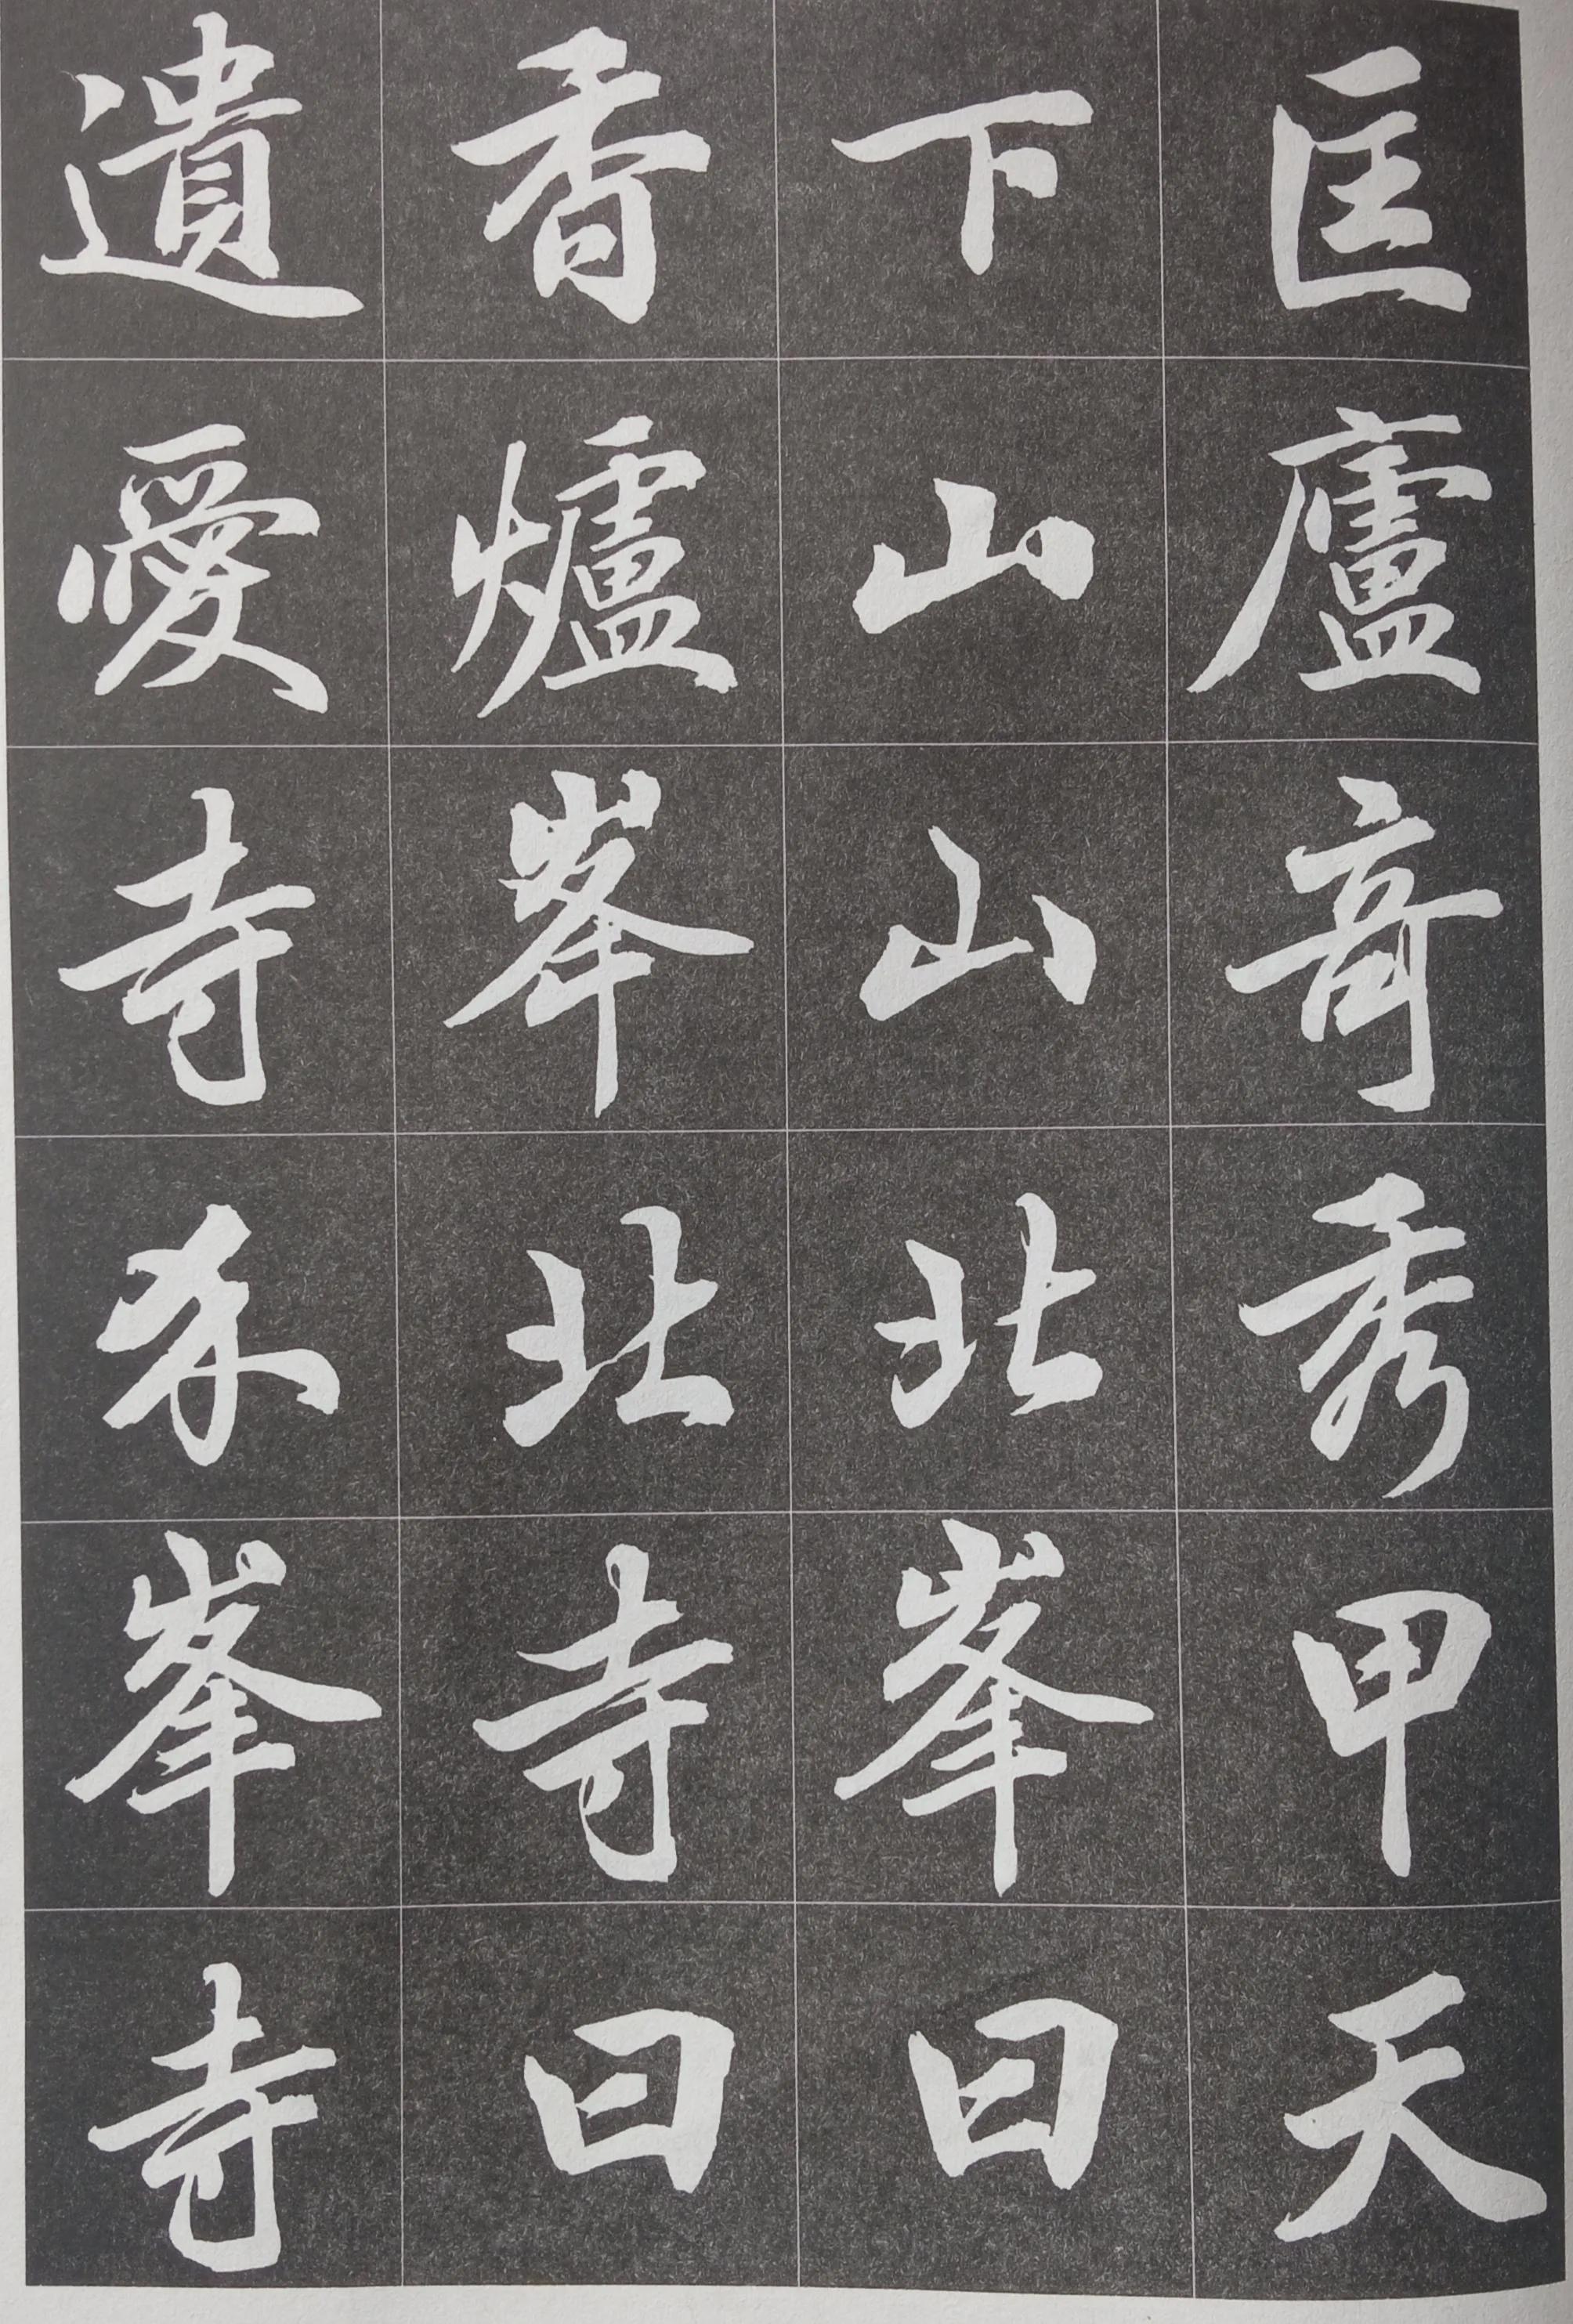 匡廬竒秀甲天
下山山北峯曰
香爐峯北寺曰
遺愛寺介峯寺